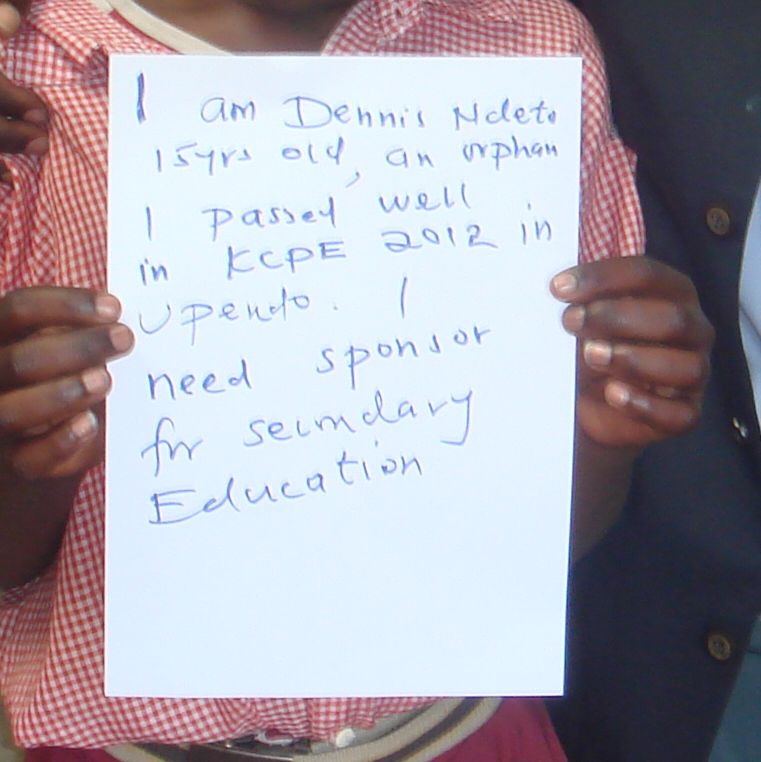 I am Dennis Ndeto
15yrs old, an orphan
I passed well
in KCPE 2012 in
Upendo. I
need sponsor
for secondary
Education